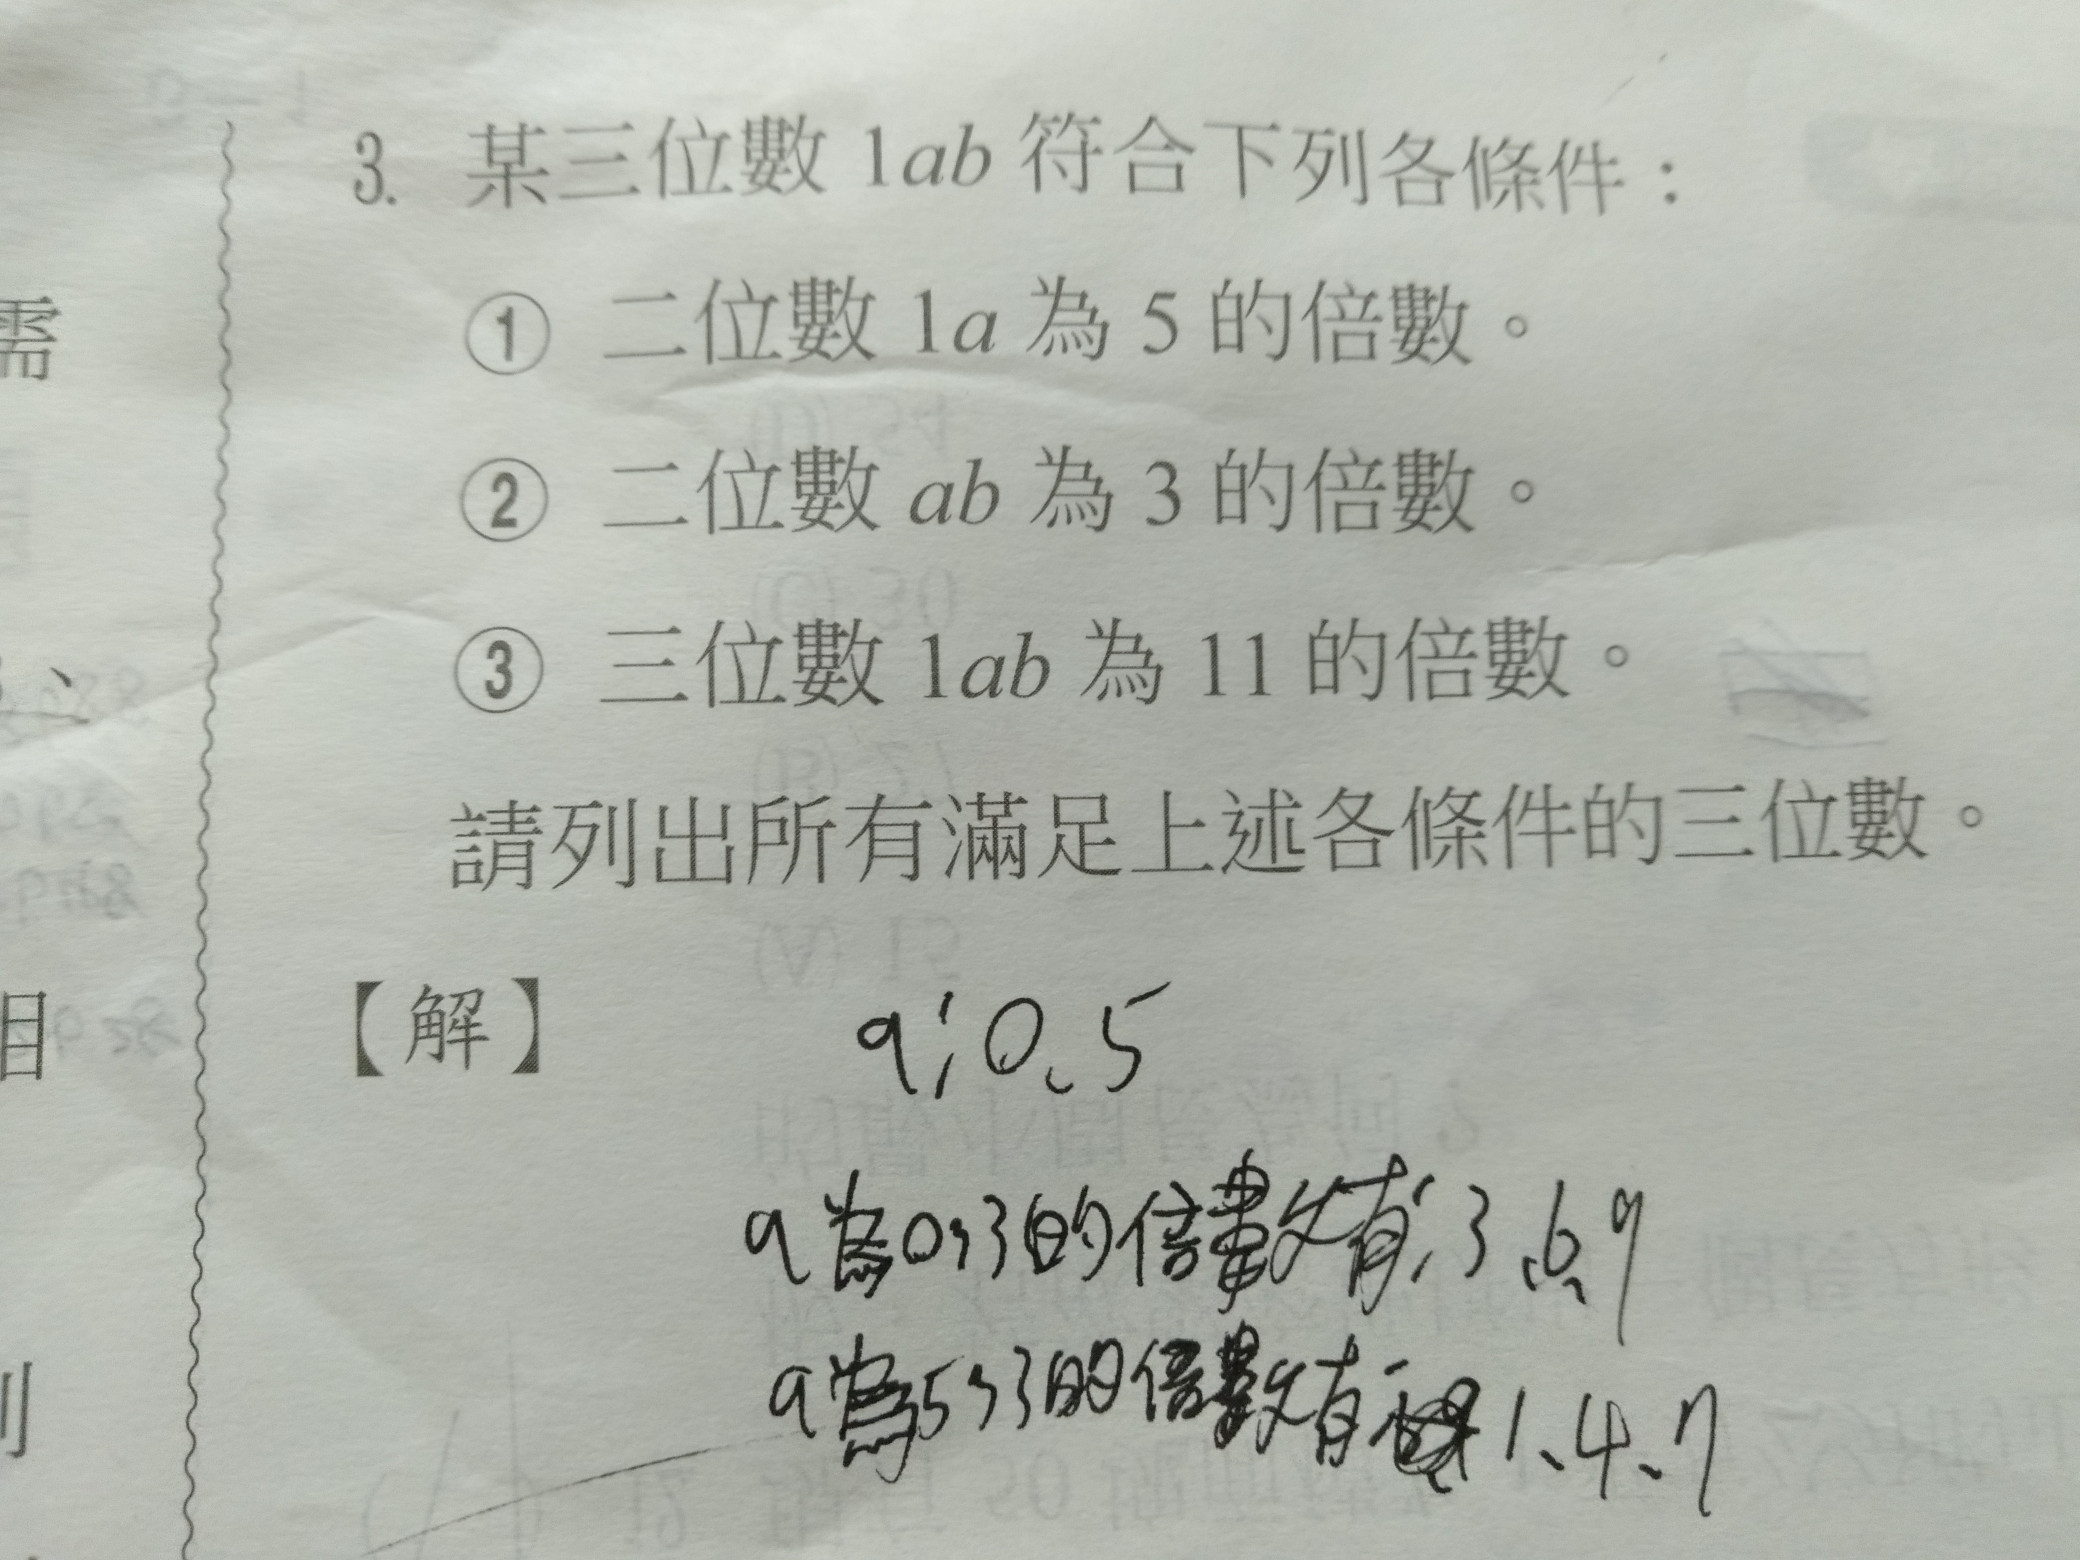 3. 某三位數 1ab 符合下列各條件：
① 二位數 1a 為 5 的倍數。
② 二位數 ab 為 3 的倍數。
③ 三位數 1ab 為 11 的倍數。
請列出所有滿足上述各條件的三位數。
【解】 a:0、5
a為0,3的倍數有:3、6、9
a為5,3的倍數有 1、4、7
需
相